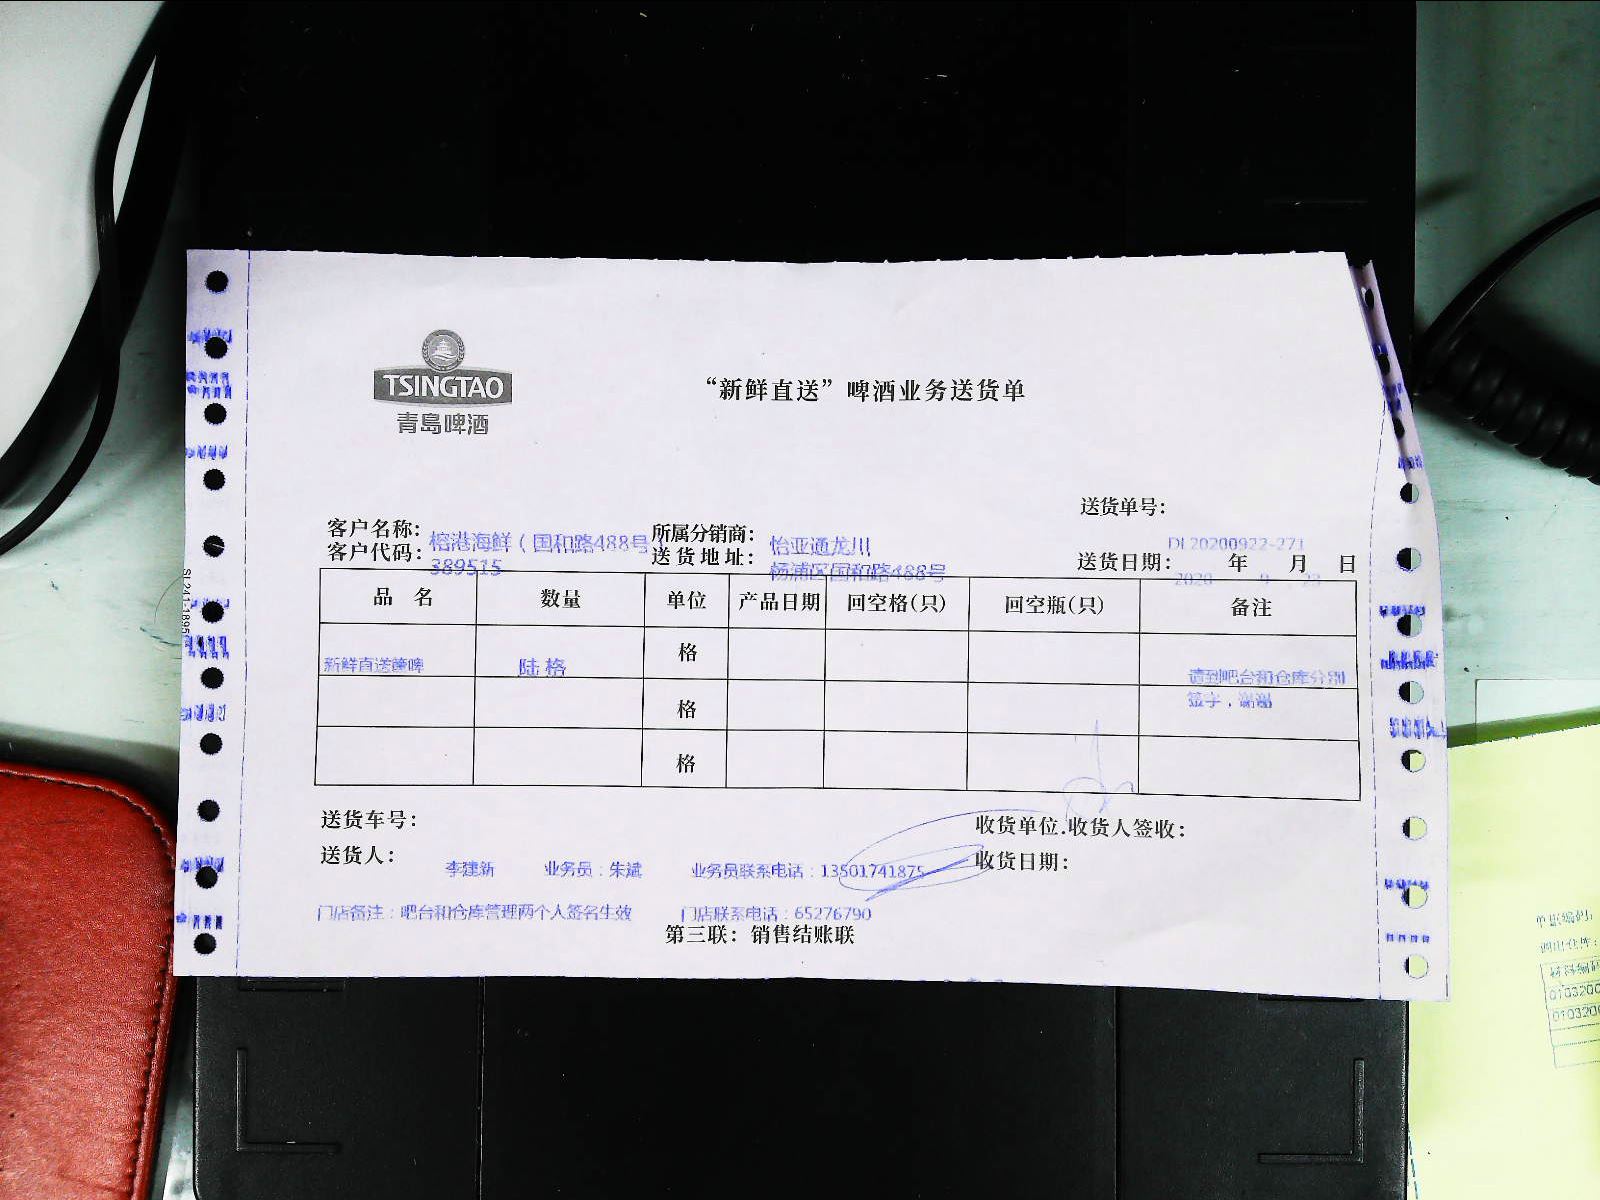 TSINGTAO
青島啤酒
“新鲜直送”啤酒业务送货单
送货单号：
DL20200922-271
客户名称： 榕港海鲜（国和路488号） 所属分销商： 怡亚通龙川
客户代码： 389515 送货地址： 杨浦区国和路488号 送货日期： 2020 年 9 月 23 日
品 名 数量 单位 产品日期 回空格(只) 回空瓶(只) 备注
新鲜直送 陆格 格 请到吧台和仓库分别
签字，谢谢
格
格
送货车号： 收货单位.收货人签收：
送货人： 李建新 业务员：朱斌 业务员联系电话：13501741875 收货日期：
门店备注：吧台和仓库管理两个人签名生效 门店联系电话：65276790
第三联：销售结账联
SL241-1895